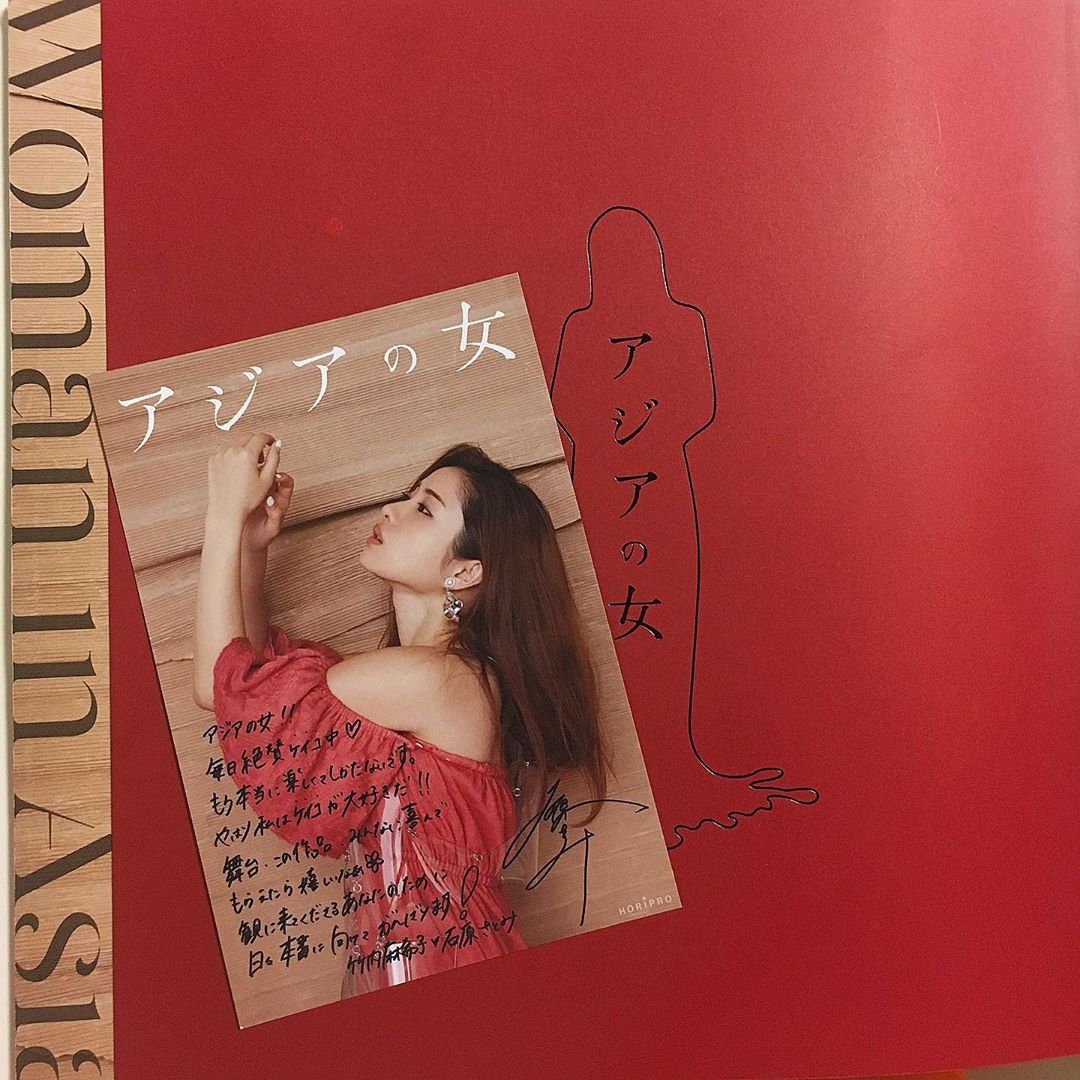 Woman in Asia
アジアの女
アジアの女
アジアの女!!
毎日絶賛ケイコ中♡
もう本当に楽しくてしかたないです。
やはり私はケイコが大好きだ!!
舞台・この作品、みんなに喜んで
もらえたら嬉しいなぁ
観に来てくださるあなたのために
日々本番に向けてがんばります!
竹内麻希子♥石原さとみ
HORIPRO